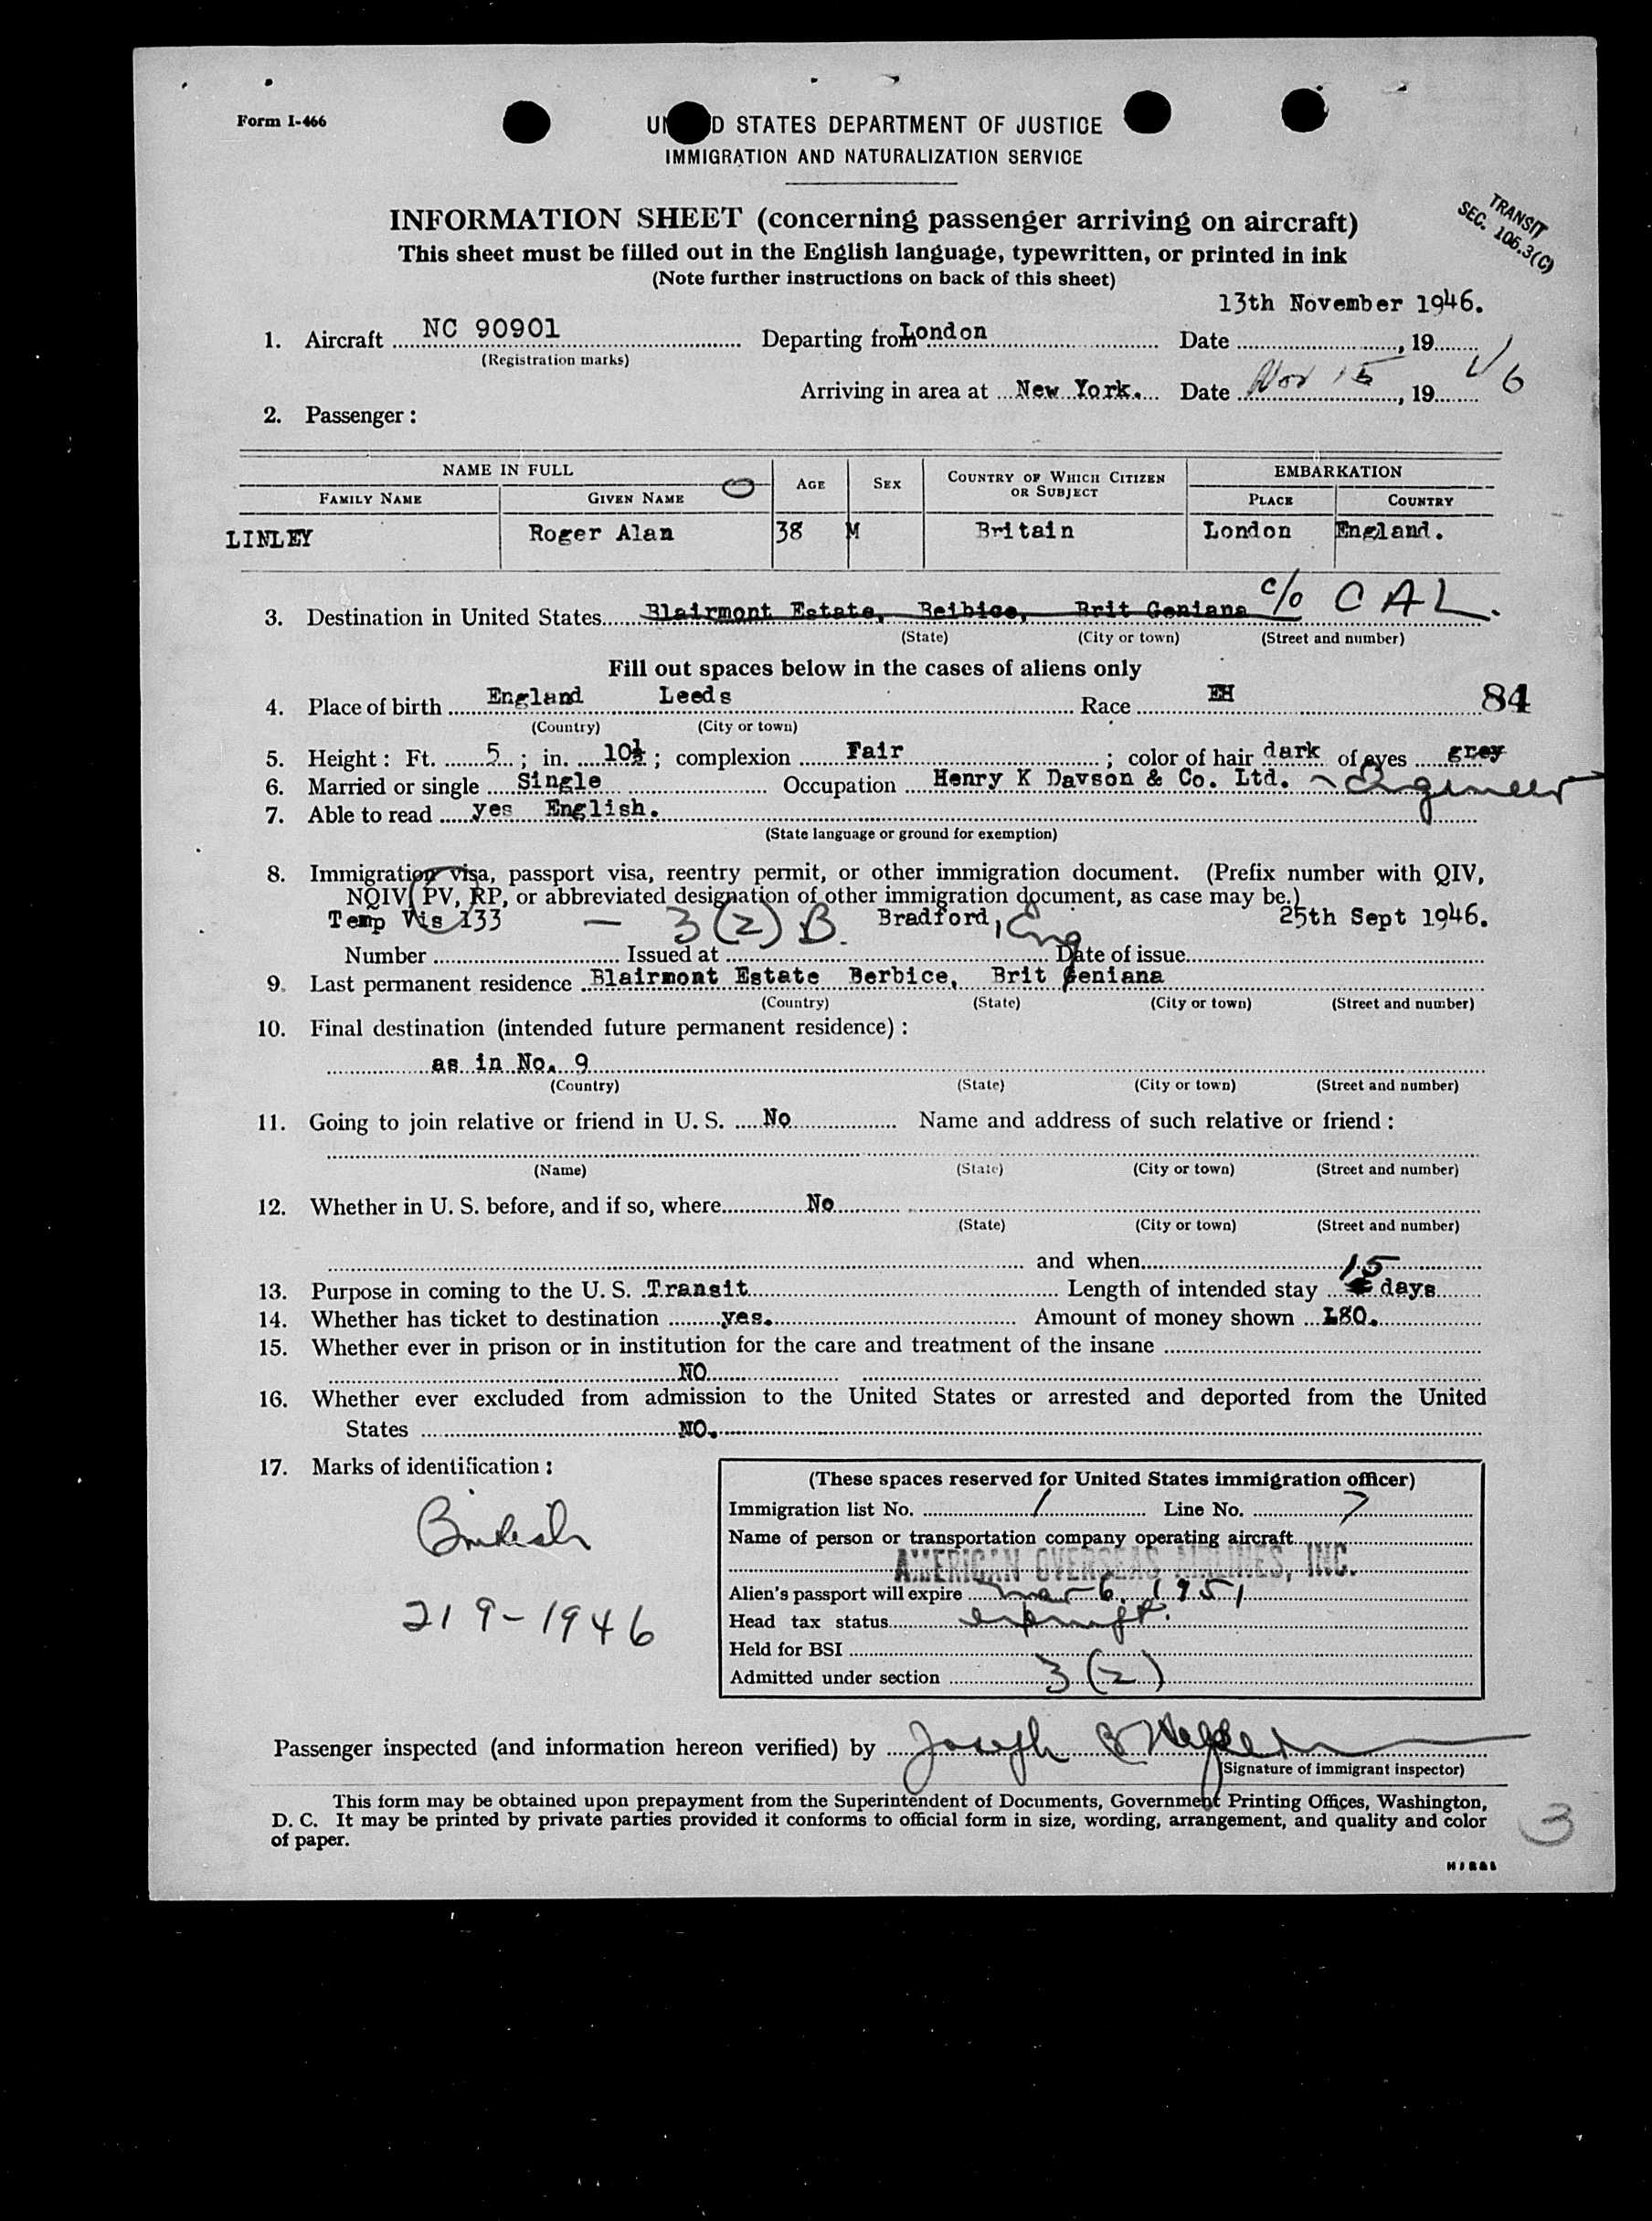 Form I-466
UN D STATES DEPARTMENT OF JUSTICE
IMMIGRATION AND NATURALIZATION SERVICE
INFORMATION SHEET (concerning passenger arriving on aircraft)
TRANSIT
SEC. 106.3(C)
This sheet must be filled out in the English language, typewritten, or printed in ink
(Note further instructions on back of this sheet)
13th November 1946.
1. Aircraft NC 90901 Departing from London Date , 19
(Registration marks)
Arriving in area at New York. Date Nov 15 , 19 46
2. Passenger :
NAME IN FULL AGE SEX COUNTRY OF WHICH CITIZEN OR SUBJECT EMBARKATION
FAMILY NAME GIVEN NAME PLACE COUNTRY
LINLEY Roger Alan 38 M Britain London England.
3. Destination in United States Blairmont Estate, Beibice, Brit Geniana c/o CAL.
(State) (City or town) (Street and number)
Fill out spaces below in the cases of aliens only
4. Place of birth England Leeds Race EH 84
(Country) (City or town)
5. Height : Ft. 5 ; in. 10½ ; complexion Fair ; color of hair dark of eyes grey
6. Married or single Single Occupation Henry K Davson & Co. Ltd. ~ Engineer
7. Able to read yes English.
(State language or ground for exemption)
8. Immigration visa, passport visa, reentry permit, or other immigration document. (Prefix number with QIV,
NQIV, PV, RP, or abbreviated designation of other immigration document, as case may be.)
Temp Vis 133 — 3(2) B. Bradford, Eng 25th Sept 1946.
Number Issued at Date of issue
9. Last permanent residence Blairmont Estate Berbice, Brit Geniana
(Country) (State) (City or town) (Street and number)
10. Final destination (intended future permanent residence) :
as in No. 9
(Country) (State) (City or town) (Street and number)
11. Going to join relative or friend in U. S. No Name and address of such relative or friend :
(Name) (State) (City or town) (Street and number)
12. Whether in U. S. before, and if so, where No
(State) (City or town) (Street and number)
and when
13. Purpose in coming to the U. S. Transit Length of intended stay 15 days
14. Whether has ticket to destination yes. Amount of money shown L80.
15. Whether ever in prison or in institution for the care and treatment of the insane
NO
16. Whether ever excluded from admission to the United States or arrested and deported from the United
States NO.
17. Marks of identification :
British
219-1946
(These spaces reserved for United States immigration officer)
Immigration list No. 1 Line No. 7
Name of person or transportation company operating aircraft
AMERICAN OVERSEAS AIRLINES, INC.
Alien's passport will expire Mar 6, 1951
Head tax status exempt.
Held for BSI
Admitted under section 3(2)
Passenger inspected (and information hereon verified) by Joseph
(Signature of immigrant inspector)
This form may be obtained upon prepayment from the Superintendent of Documents, Government Printing Offices, Washington,
D. C. It may be printed by private parties provided it conforms to official form in size, wording, arrangement, and quality and color
of paper.
3